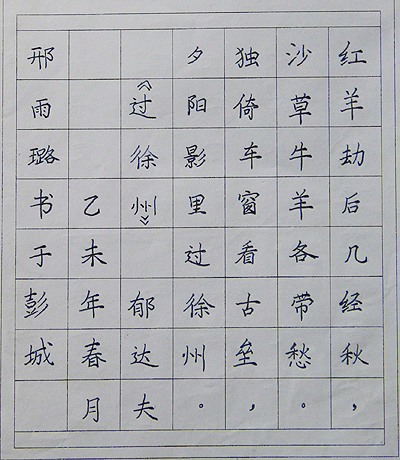 红羊劫后几经秋，
沙草牛羊各带愁。
独倚车窗看古垒，
夕阳影里过徐州。
《过徐州》
郁达夫
乙未年春月
邢雨璐书于彭城